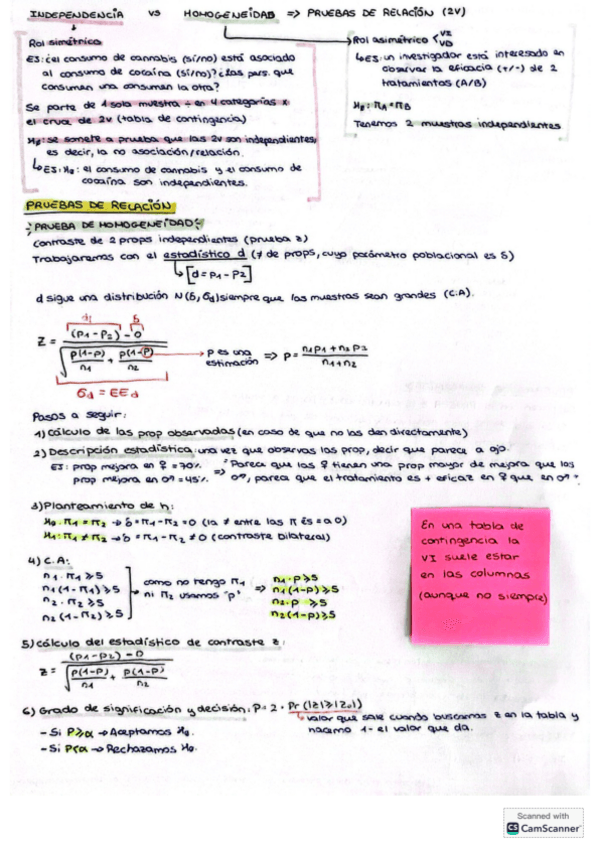 INDEPENDENCIA VS HOMOGENEIDAD => PRUEBAS DE RELACIÓN (2V)
Rol simétrico
EJ: ¿el consumo de cannabis (sí/no) está asociado
al consumo de cocaína (sí/no)? ¿Las pers. que
consumen una consumen la otra?
Se parte de 1 sola muestra ÷ en 4 categorías x
el cruce de 2v (tabla de contingencia)
H0: se somete a prueba que las 2v son independientes,
es decir, la no asociación/relación.
↳ EJ: H0: el consumo de cannabis y el consumo de
cocaína son independientes.
Rol asimétrico < VI
VD
↳ EJ: un investigador está interesado en
observar la eficacia (+/-) de 2
tratamientos (A/B)
H0: π1 = πB
Tenemos 2 muestras independientes
PRUEBAS DE RELACIÓN
- PRUEBA DE HOMOGENEIDAD:
Contraste de 2 props independientes (prueba z)
Trabajaremos con el estadístico d (≠ de props, cuyo parámetro poblacional es δ)
↳ [d = p1 - p2]
d sigue una distribución N(δ, σd) siempre que las muestras sean grandes (C.A)
di δ
Z = (p1 - p2) - 0 / √ p(1-p)/n1 + p(1-p)/n2 → p es una estimación => p = n1p1 + n2p2 / n1 + n2
σd = EEd
Pasos a seguir:
1) Cálculo de las prop observadas (en caso de que no las den directamente)
2) Descripción estadística: una vez que observas las prop, decir que parece a ojo.
EJ: prop mejora en ♀ = 70% => "Parece que las ♀ tienen una prop mayor de mejora que los
prop mejora en ♂ = 45% ♂, parece que el tratamiento es + eficaz en ♀ que en ♂"
3) Planteamiento de h:
H0: π1 = π2 → δ = π1 - π2 = 0 (la ≠ entre las π es = a 0)
H1: π1 ≠ π2 → δ = π1 - π2 ≠ 0 (contraste bilateral)
4) C.A:
n1 · π1 ≥ 5
n1 (1 - π1) ≥ 5
n2 · π2 ≥ 5
n2 (1 - π2) ≥ 5
como no tengo π1
ni π2 usamos "p"
=>
n1 · p ≥ 5
n1 (1-p) ≥ 5
n2 · p ≥ 5
n2 (1-p) ≥ 5
En una tabla de
contingencia la
VI suele estar
en las columnas
(aunque no siempre)
5) Cálculo del estadístico de contraste z:
z = (p1 - p2) - 0 / √ p(1-p)/n1 + p(1-p)/n2
6) Grado de significación y decisión: P = 2 · Pr (|z| ≥ |z0|)
↳ valor que sale cuando buscamos z en la tabla y
hacemos 1 - el valor que da.
- Si P ≥ α → Aceptamos H0.
- Si P < α → Rechazamos H0.
Scanned with
CS CamScanner